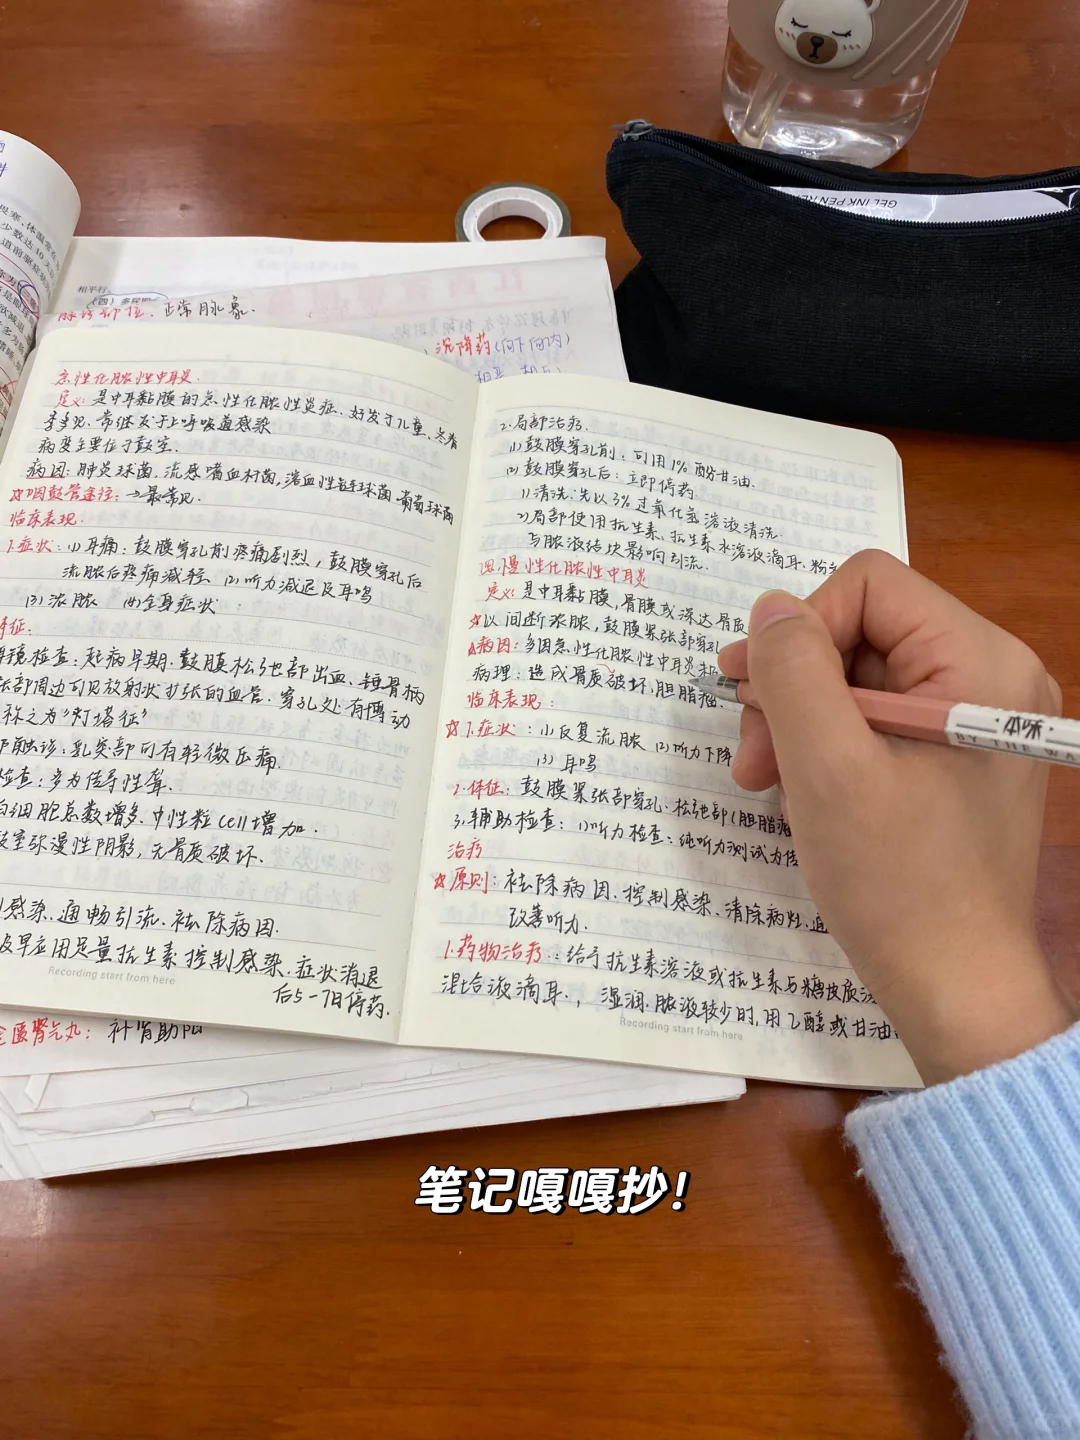 相平行
(四)
正常脉象.
沉降药(向下向内)
GEL INK PEN RE
急性化脓性中耳炎.
定义: 是中耳黏膜的急性化脓性炎症. 好发于儿童、冬春
季多见. 常继发于上呼吸道感染
病变主要位于鼓室.
病因: 肺炎球菌. 流感嗜血杆菌, 溶血性链球菌. 葡萄球菌
☆咽鼓管途径: →最常见.
临床表现.
1.症状: (1)耳痛: 鼓膜穿孔前疼痛剧烈, 鼓膜穿孔后
流脓后疼痛减轻. (2)听力减退及耳鸣
(3)流脓 (4)全身症状:
镜检查: 起病早期. 鼓膜松弛部出血. 锤骨柄
部周边可见放射状扩张的血管. 穿孔处有搏动
称之为"灯塔征"
部触诊: 乳突部可有轻微压痛.
检查: 多为传导性聋.
白细胞总数增多. 中性粒cell增加.
鼓室弥漫性阴影, 无骨质破坏.
感染. 通畅引流. 祛除病因.
及早应用足量抗生素控制感染. 症状消退
后5-7日停药.
Recording start from here
肾气丸: 补肾助阳
2.局部治疗.
(1)鼓膜穿孔前: 可用1%酚甘油.
(2)鼓膜穿孔后: 立即停药.
1)清洗: 先以3%过氧化氢溶液清洗.
2)局部使用抗生素. 抗生素水溶液滴耳. 粉
与脓液结块影响引流.
四.慢性化脓性中耳炎
定义: 是中耳黏膜, 骨膜或深达骨质
☆以间断流脓, 鼓膜紧张部穿孔
病因: 多因急性化脓性中耳炎
病理: 造成骨质破坏, 胆脂瘤.
临床表现:
☆1.症状: (1)反复流脓 (2)听力下降
(3)耳鸣
2.体征: 鼓膜紧张部穿孔. 松弛部(胆脂瘤
3.辅助检查: 1)听力检查: 纯听力测试为传
治疗
☆原则: 祛除病因. 控制感染. 清除病灶. 通
改善听力.
1.药物治疗: 给予抗生素溶液或抗生素与糖皮质
混合液滴耳., 湿润. 脓液较少时, 用乙醇或甘油
Recording start from here
本味
BY THE WA
笔记嘎嘎抄!